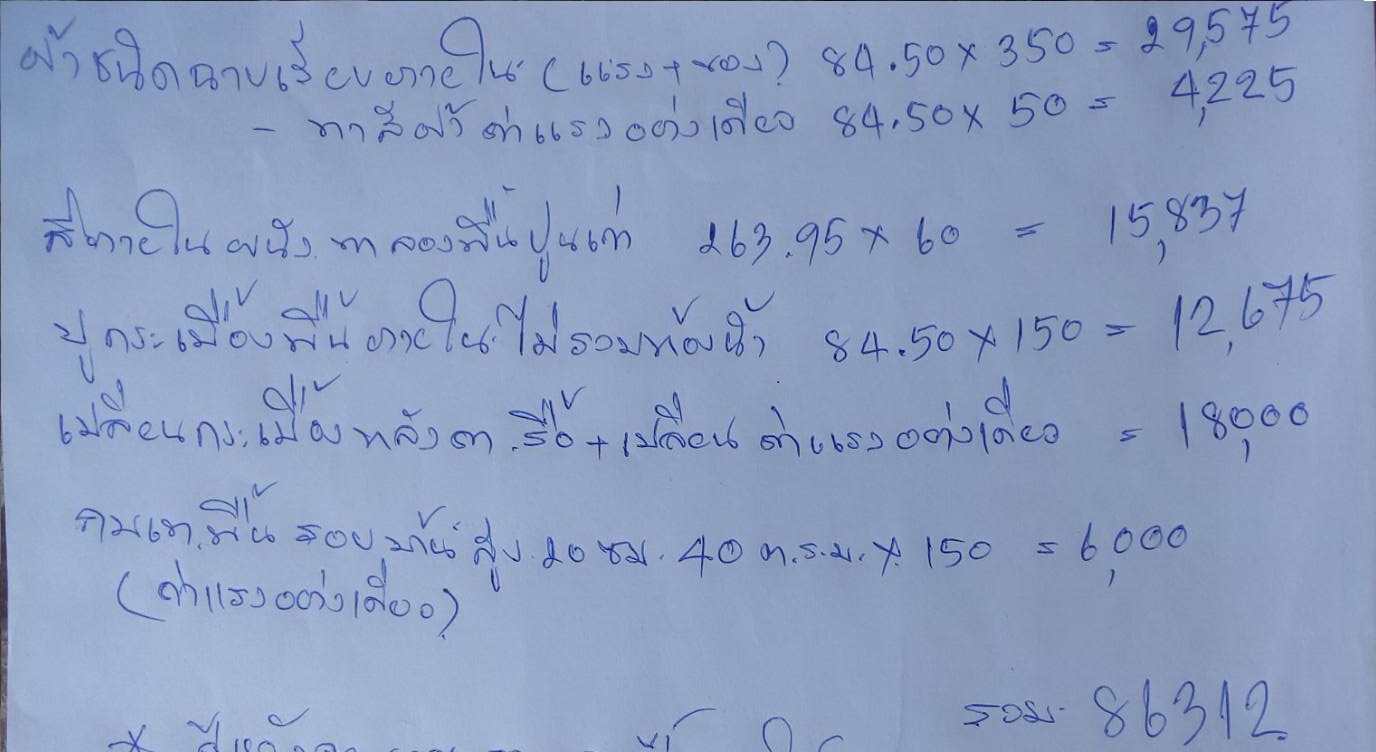 ฝ้าชนิดฉาบเรียบภายใน (แรง+ของ) 84.50 x 350 = 29,575
- ทาสีฝ้า ค่าแรงอย่างเดียว 84.50 x 50 = 4,225
สีภายใน ผนัง ทาลองพื้นปูนเก่า 263.95 x 60 = 15,837
ปูกระเบื้องพื้นภายใน ไม่รวมห้องน้ำ 84.50 x 150 = 12,675
เปลี่ยนกระเบื้องหลังคา รื้อ + เปลี่ยน ค่าแรงอย่างเดียว = 18,000
พื้น รอบบ้าน สูง 20 ซม. 40 ต.ร.ม. x 150 = 6,000
(ค่าแรงอย่างเดียว)
รวม 86312